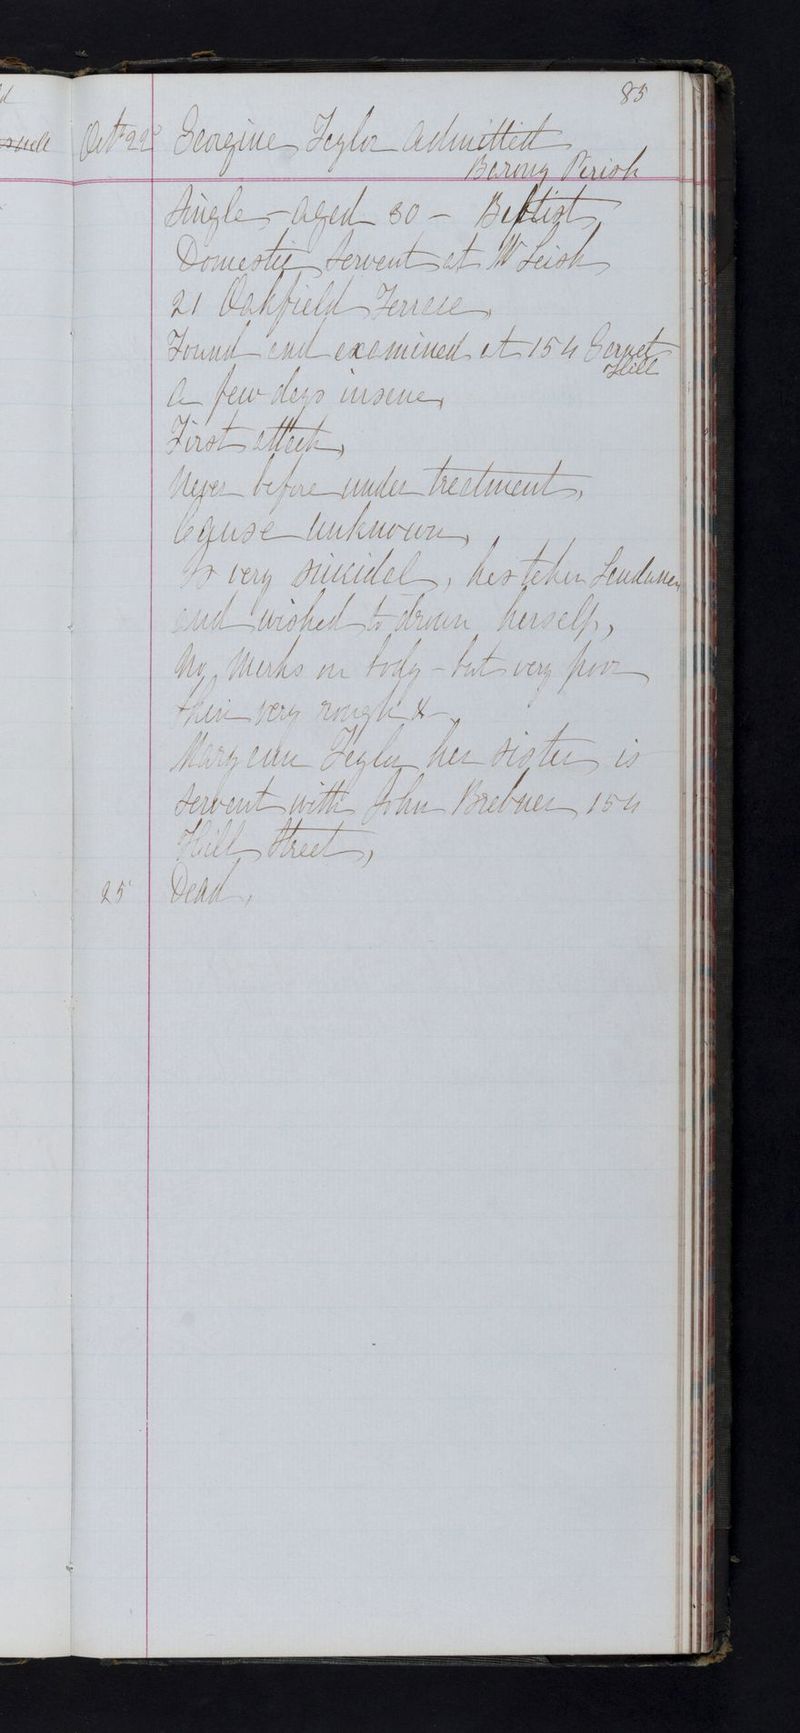 85
Octr 22d Georgina Taylor Admitted
Barony Parish
Single - aged 30 - Baptist
Domestic Servant at Mr Leish
21 Oakfield Terrace,
Found and examined at 154 Garnet
Hill
A few days insane,
First attack,
Never before under treatment,
Cause unknown,
Is very suicidal, has taken Laudanum
and wished to drown herself,
No Marks on body - but very poor
skin very rough &
Mary ann Taylor her sister is
servant with John Brebner 154
Hill Street,
25 Dead,